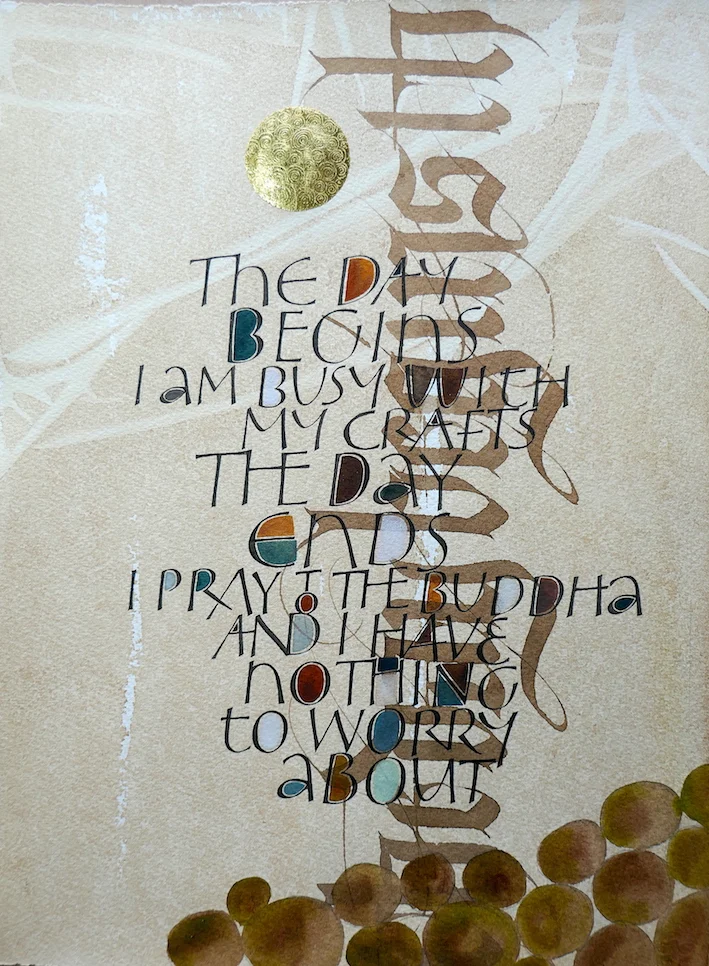 ThE DAY
BEGInS
I aM BUSY WITH
MY CRAFTS
THE DaY
EnDS
I PRAY TO THE BUDDHa
AND I HAVE
nOTHING
to WORRY
aBOUT